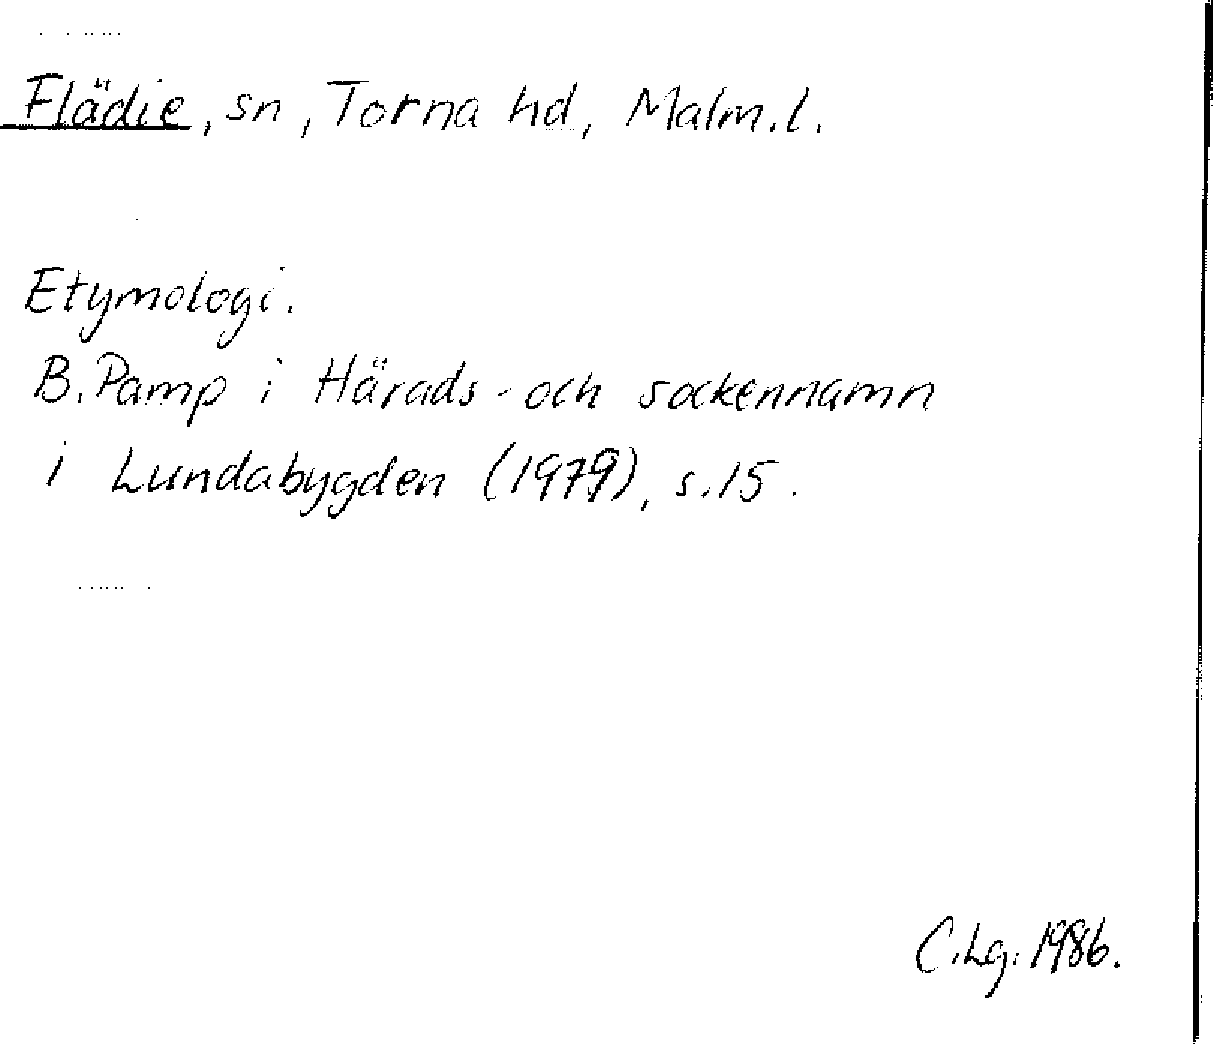 Flädie, sn, Torna hd, Malm.l.
Etymologi.
B. Pamp i Härads- och sockennamn
i Lundabygden (1979), s.15.
C.Lg. 1986.